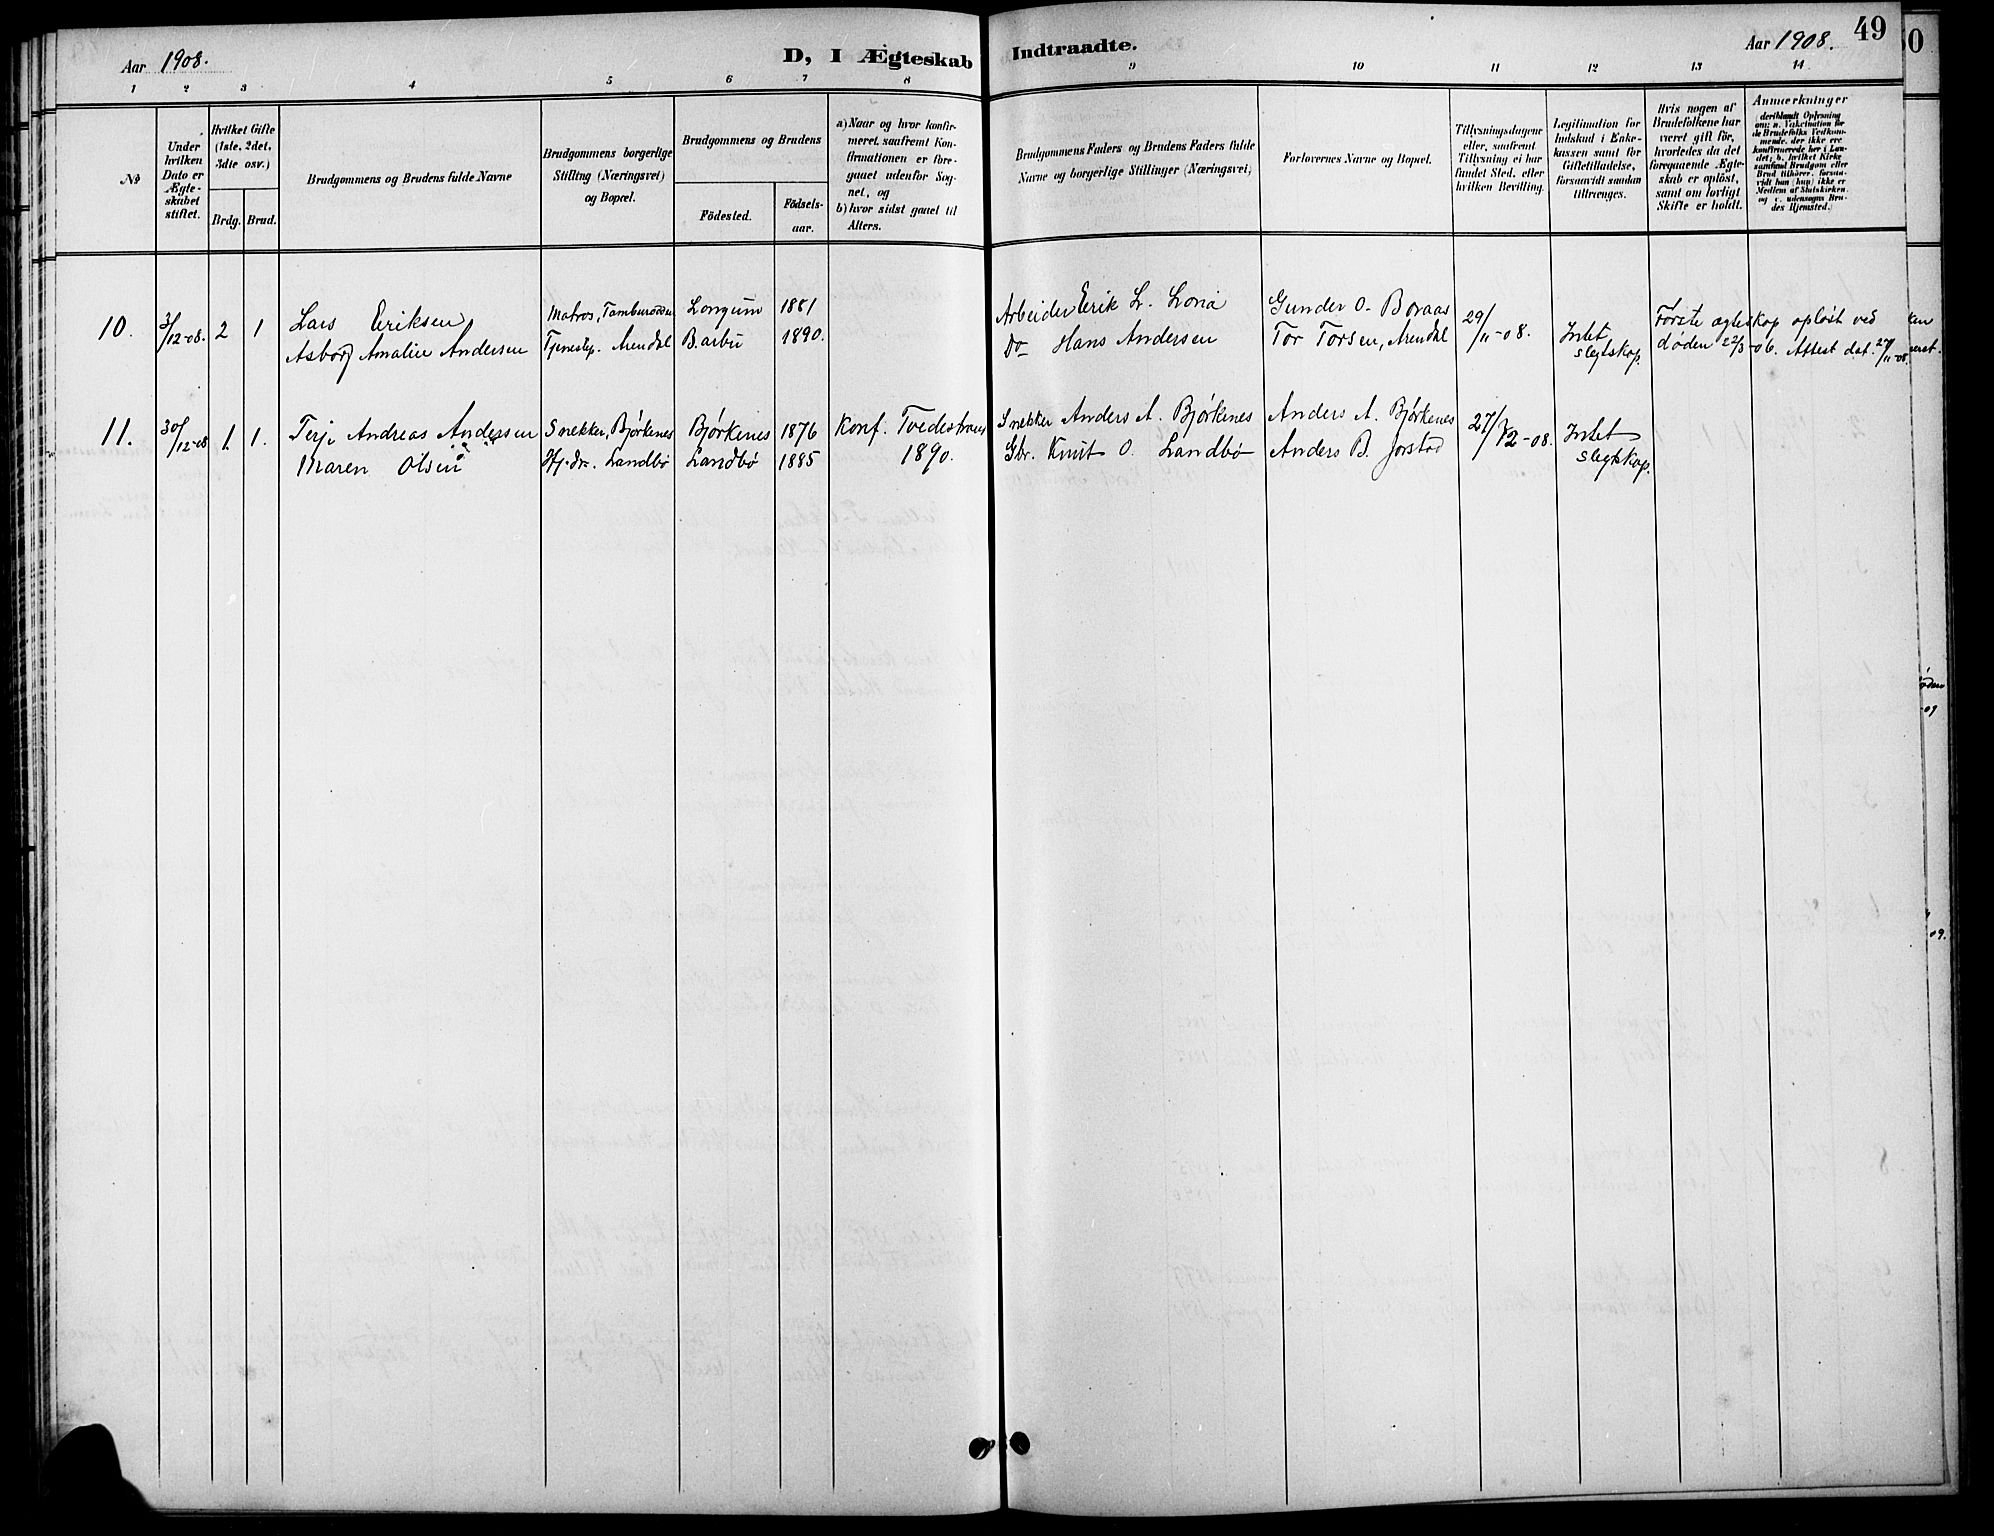 Aar 1908.
D, I Ægteskab Indtraadte.
Aar 1908. 49
1 2 3 4 5 6 7 8 9 10 11 12 13 14
No
Under
hvilken
Dato er
Ægte-
skabet
stiftet.
Hvilket Gifte
(1ste, 2det,
3die osv.)
Brdg. Brud.
Brudgommens og Brudens fulde Navne
Brudgommens borgerlige
Stilling (Næringsvei)
og Bopæl.
Brudgommens og Brudens
Födested.
Födsels-
aar.
a) Naar og hvor konfir-
meret, saafremt Kon-
firmationen er fore-
gaaet udenfor Sog-
net, og
b) hvor sidst gaaet til
Alters.
Brudgommens Faders og Brudens Faders fulde
Navne og borgerlige Stillinger (Næringsvei)
Forlovernes Navne og Bopæl.
Tillysningsdagene
eller, saafremt
Tillysning ei har
fundet Sted, efter
hvilken Bevilling.
Legitimation for
Indskud i Enke-
kassen samt for
Giftetilladelse,
forsaavidt saadan
tiltrænges.
Hvis nogen af
Brudefolkene har
været gift för,
hvorledes da det
foregaaende Ægte-
skab er oplöst,
samt om lovligt
Skifte er holdt.
Anmærkninger
deriblandt Oplysning
om: a. Vakcination for
de Brudefolks Vedkom-
mende, der ikke ere
konfirmerede her i Lan-
det; b. hvilket Kirke-
samfund Brudgom eller
Brud tilhörer, forsaa-
vidt han (hun) ikke er
Medlem af Statskirken,
og c. udensogns Bru-
des Hjemsted.)
10. 3/12-08. 2 1 Lars Eriksen Matros, Longum 1881 Arbeider Erik L. Gunder O. Boraas 29/11-08. Intet Første ægteskap opløst ved
Asborg Amalie Andersen Tjenestep. Arendal Barbu 1890. Do Hans Andersen Tor Torsen, Arendal slegtskap. døden 22/3-06. Attest dat. 27/11-08.
11. 30/12-08 1. 1. Terje Andreas Andersen Snekker, Bjørkenes Bjørkenes 1876 Konf. Tvedestrand Snekker Anders A. Bjørkenes Anders A. Bjørkenes 27/12-08. Intet
Maren Olsen Landbø Landbø 1885 1890. Gbr. Knut O. Landbø Anders B. Jorstad slegtskap.